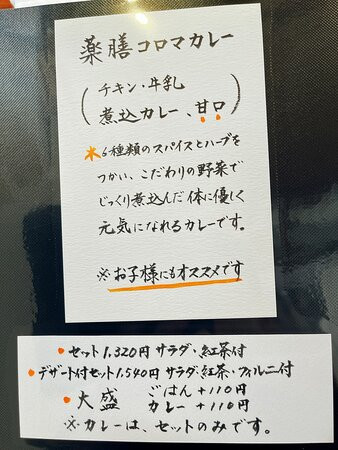 薬膳コロマカレー
(チキン・牛乳
煮込カレー、甘口)
木6種類のスパイスとハーブを
つかい、こだわりの野菜で
じっくり煮込んだ体に優しく
元気になれるカレーです。
※お子様にもオススメです
・セット1,320円 サラダ・紅茶付
・デザート付セット1,540円 サラダ・紅茶・フィルニ付
・大盛 ごはん+110円
カレー+110円
※カレーは、セットのみです。